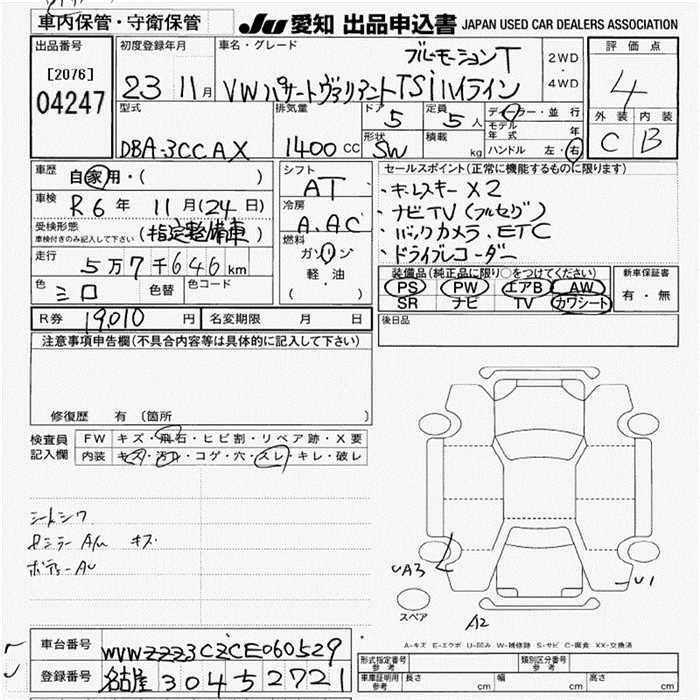 車内保管・守衛保管
JU 愛知 出品申込書 JAPAN USED CAR DEALERS ASSOCIATION
出品番号
[2076]
04247
初度登録年月
23 11月
車名・グレード
ブルーモーションT
VWパサートヴァリアントTSiハイライン
2WD
・
4WD
評価点
4
外装 内装
C B
型式
DBA-3CCAX
排気量
1400 CC
ドア
5
定員
5 人
形状
SW
積載
kg
ディーラー・並行
モデル年式 年
ハンドル 左・右
車歴 自家用・( )
車検 R6 年 11月(24日)
受検形態
車検付きのみ記入して下さい (指定整備車)
走行 5万7千646km
色 シロ 色替 色コード
シフト
AT
冷房
A.AC
燃料
ガソリン
軽油
( )
セールスポイント(正常に機能するものに限ります)
・キーレスキー X2
・ナビTV(フルセグ)
・バックカメラ.ETC
・ドライブレコーダー
装備品(純正品に限り○をつけてください)
PS PW エアB AW
SR ナビ TV カワシート
新車保証書
有・無
R券 19,010 円 名変期限 月 日
後日品
注意事項申告欄(不具合内容等は具体的に記入して下さい)
修復歴 有 (箇所 )
検査員
記入欄
FW キズ・飛石・ヒビ割・リペア跡・X要
内装 キズ・汚れ・コゲ・穴・スレ・キレ・破レ
シートシワ
センターAM キズ
ボディーAU
UA3
U1
スペア
A2
A-キズ E-エクボ U-凹み W-補修跡 S-サビ C-腐食 XX-交換済
車台番号 WVWZZZ3CZCE060529
登録番号 名古屋 304 5 2721
形式指定番号
参考
類別区分番号
参考
車庫証明用
参考
長さ cm 幅 cm 高さ cm